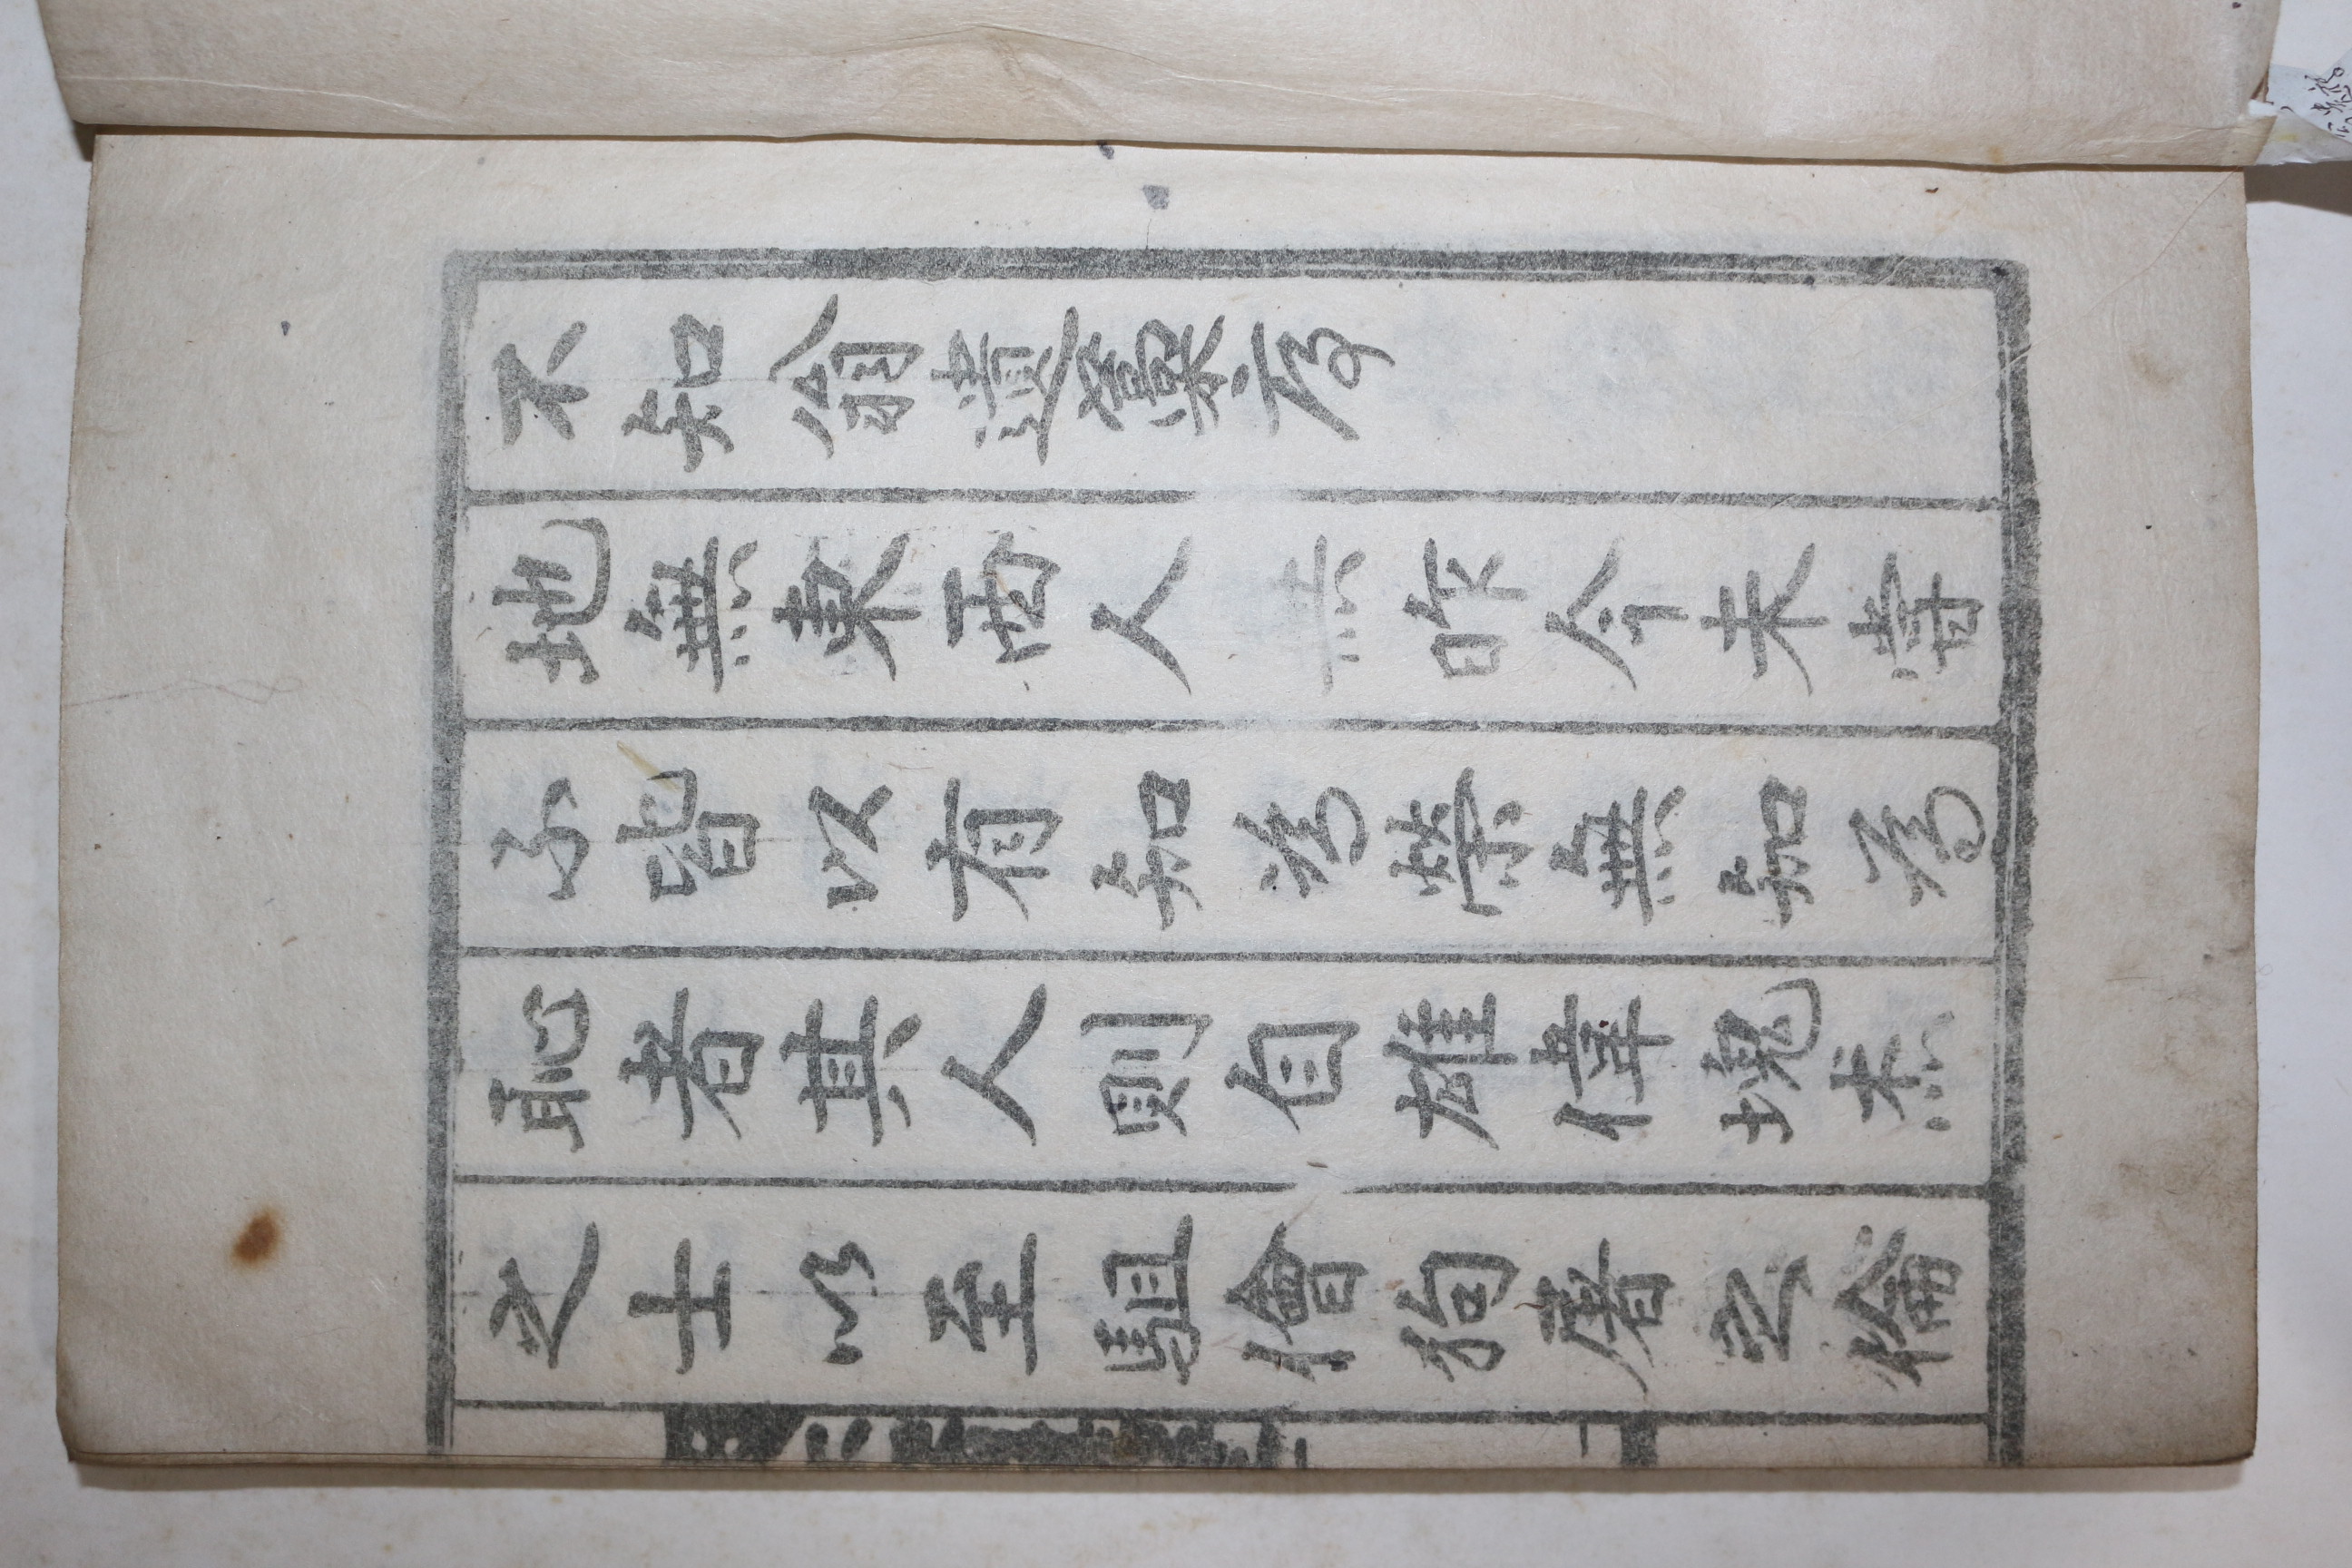 不知翁遺藁序
地無東西人無昨今未嘗
不皆以有知為榮無知為
恥者其人則自雄偉塊杰
之士以至駔儈狗屠之倫